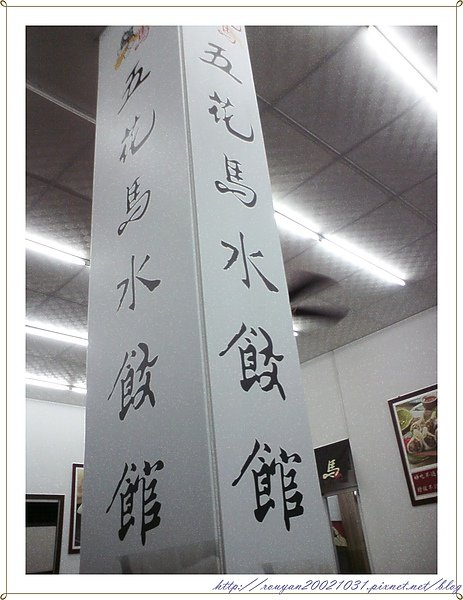 五花馬水餃館
五花馬水餃館
馬
http://rouyan20021031.pixnet.net/blog